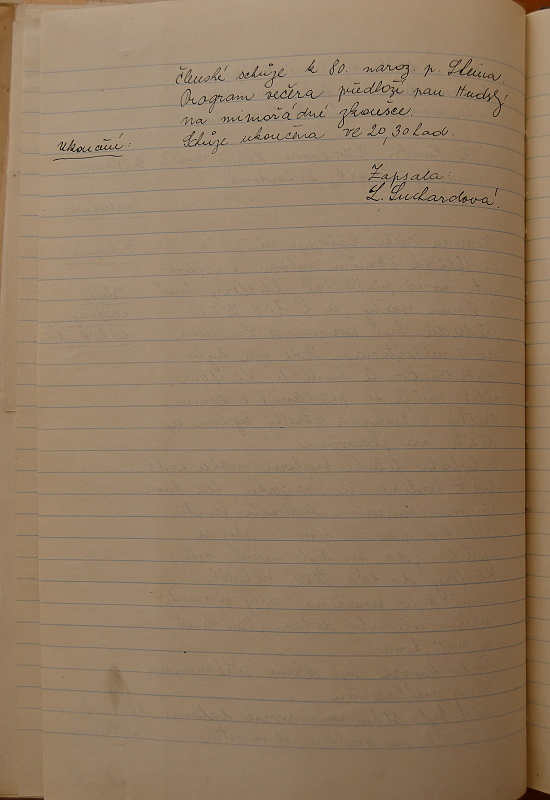 členské schůze k 80. naroz. p. Sleina.
Program večera předloží pan Hudský
na mimořádné zkoušce.
Ukončení: Schůze ukončena ve 20,30 hod.
Zapsala:
L. Suchardová.